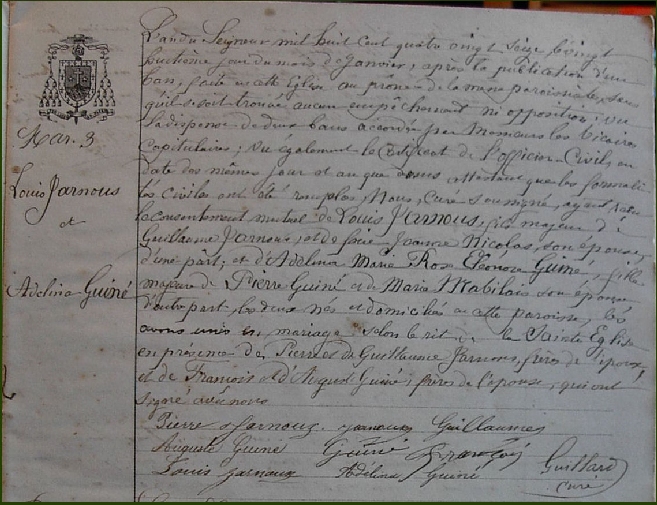 Mar. 3
Louis Jarnous
et
Adelina Guiné
L'an du Seigneur mil huit cent quatre vingt seize le vingt
huitième jour du mois de Janvier, après la publication d'un
ban, faite en cette Eglise au prône de la messe paroissiale, sans
qu'il se soit trouvé aucun empêchement ni opposition ; vu
la dispense de deux bans accordée par Messieurs les Vicaires
Capitulaires ; vu également le certificat de l'officier Civil, en
date des mêmes jour et an que dessus attestant que les formali-
tés civiles ont été remplies, Nous, Curé soussigné, ayant reçu
le consentement mutuel de Louis Jarnous, fils majeur de
Guillaume Jarnous, et de feue Jeanne Nicolas, son épouse,
d'une part ; et d'Adelina Marie Rose Eléonore Guiné, fille
majeure de Pierre Guiné et de Marie Mabilais son épouse
d'autre part, les deux nés et domiciliés en cette paroisse, les
avons unis en mariage selon le rit de la Sainte Eglise
en présence de Pierre et de Guillaume Jarnous, frères de l'époux,
et de François et d'Auguste Guiné, frères de l'épouse, qui ont
signé avec nous
Pierre Jarnoux Jarnoux Guillaumes
Auguste Guiné Guiné François
Louis Jarnoux Adélina Guiné Guillard
Curé